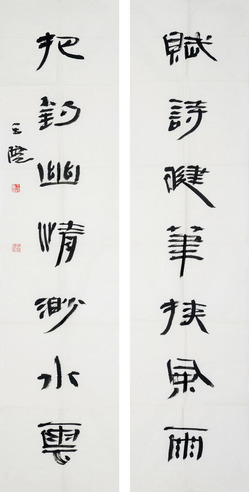 賦詩健筆挾風雨
把釣幽情渺水雲